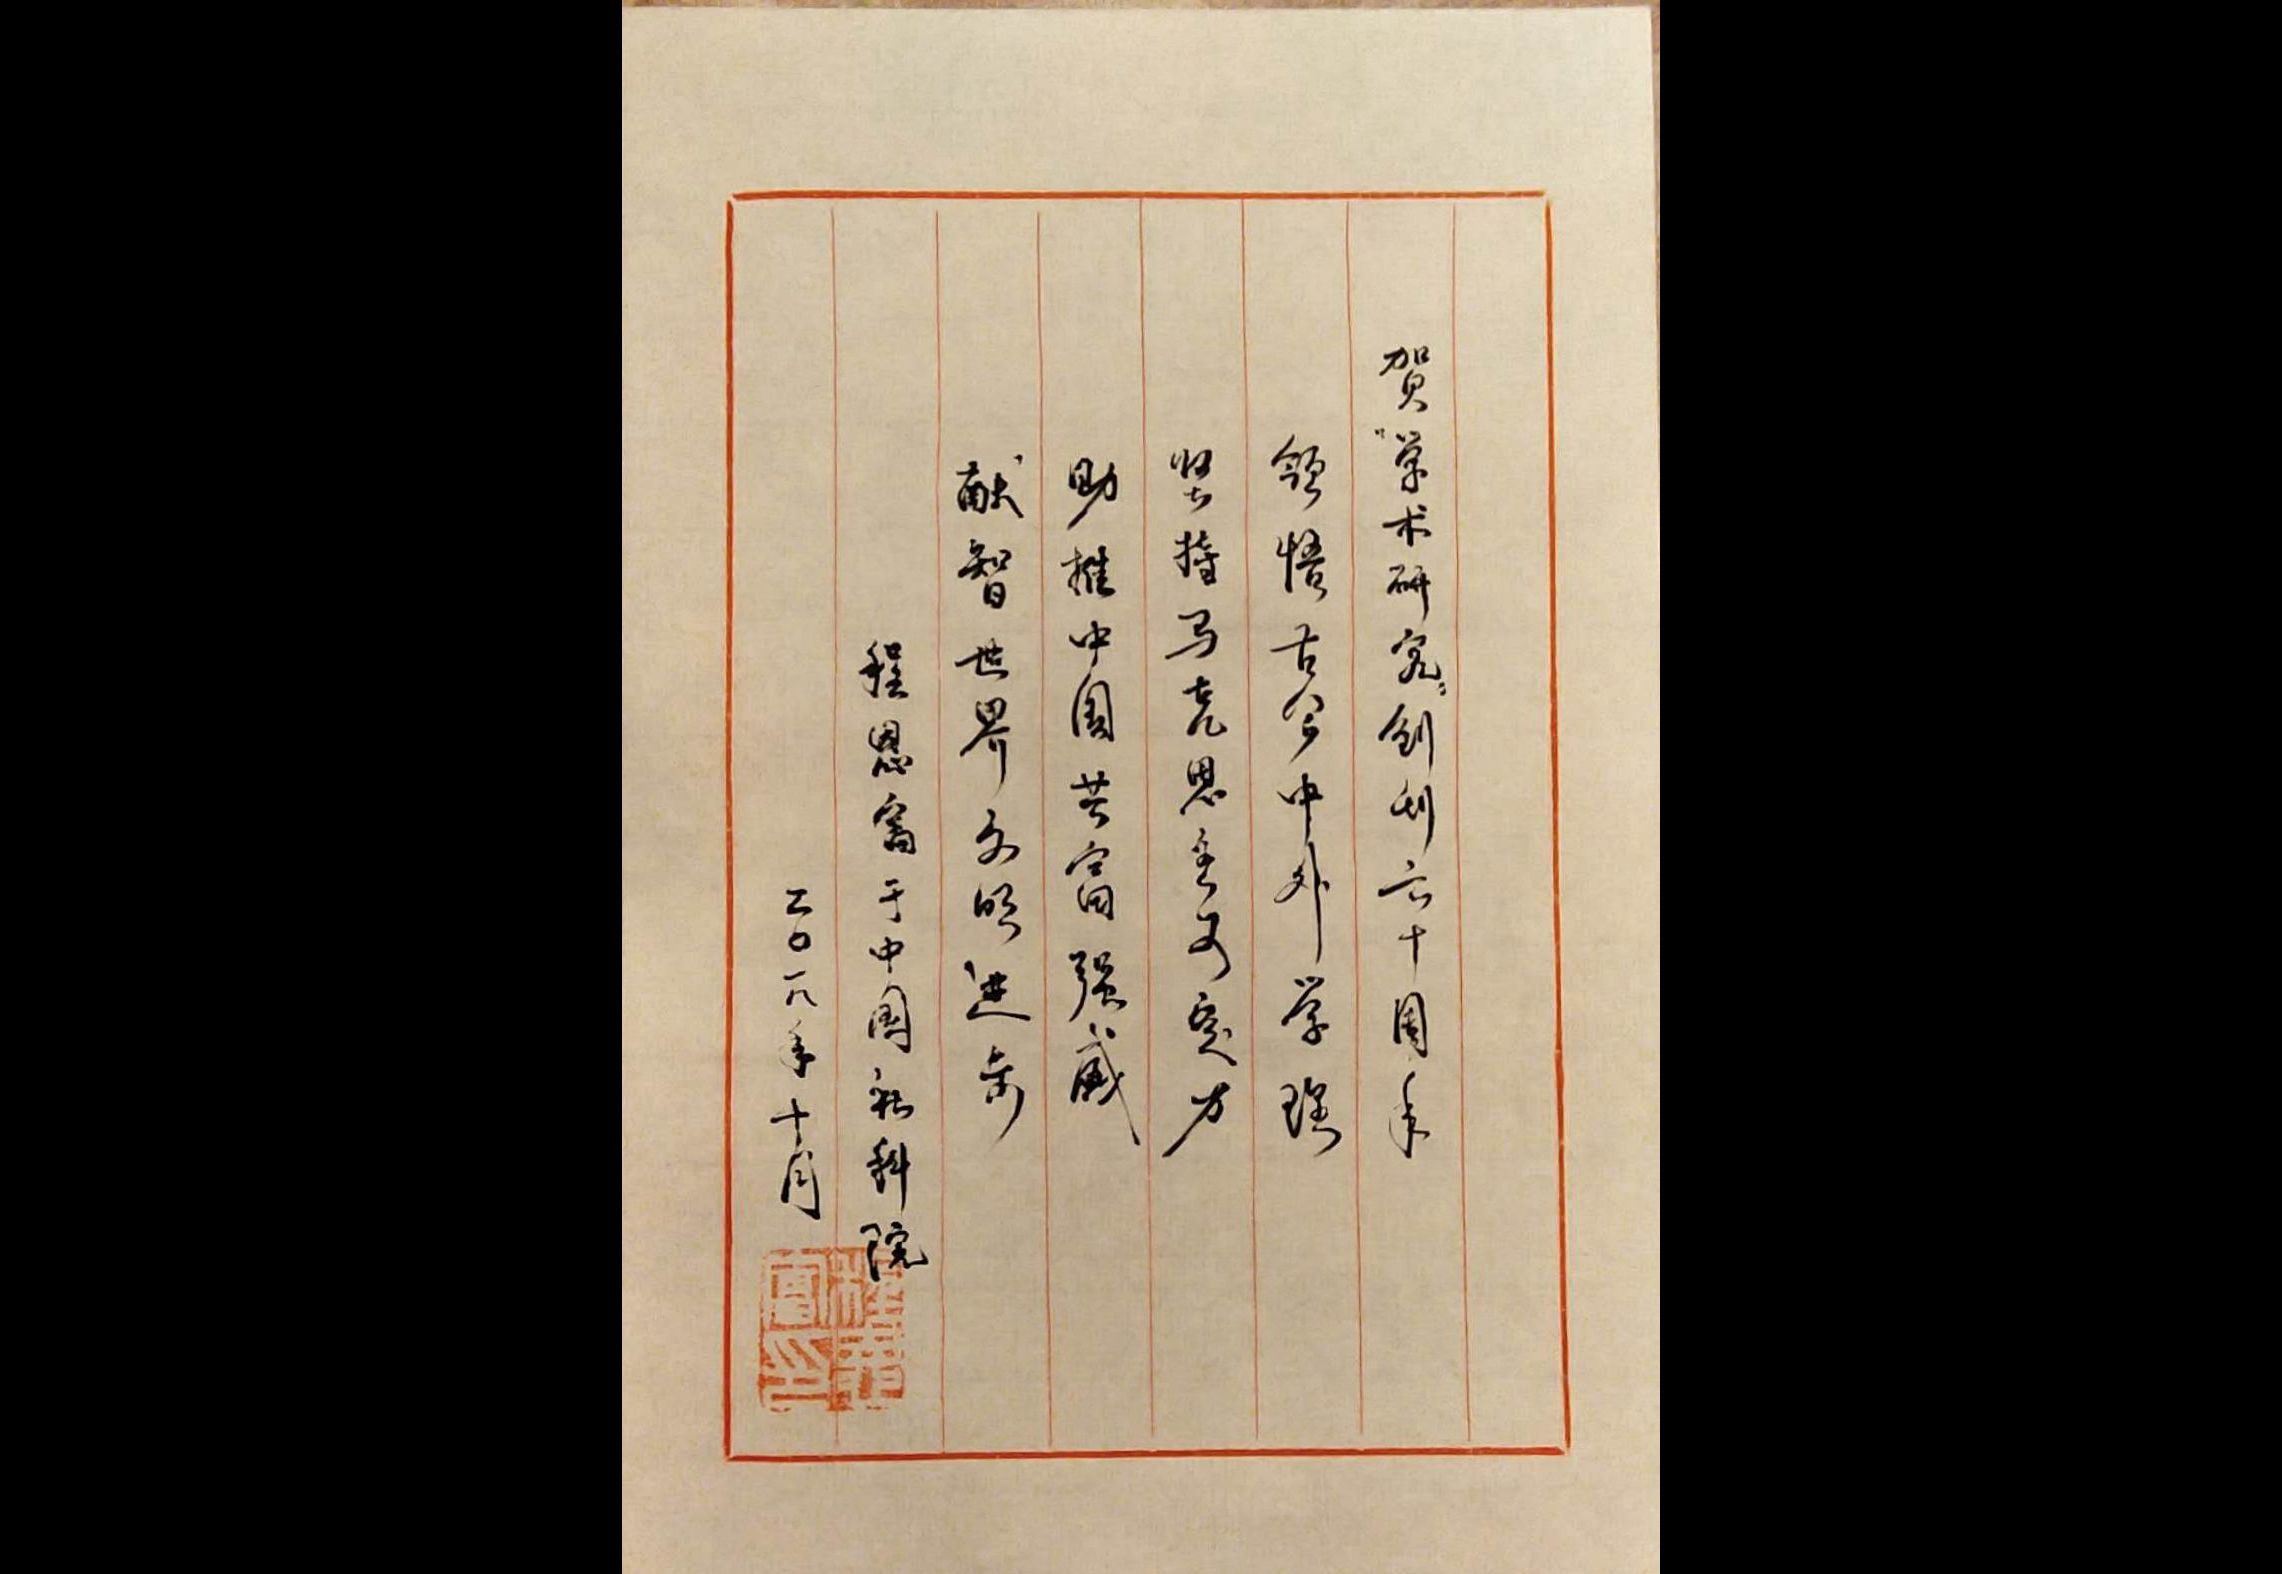 贺“学术研究”创刊六十周年
领悟古今中外学理
坚持马克思主义实力
助推中国共富强盛
献智世界文明进步
程恩富于中国社科院
二〇一八年十月
程恩富印